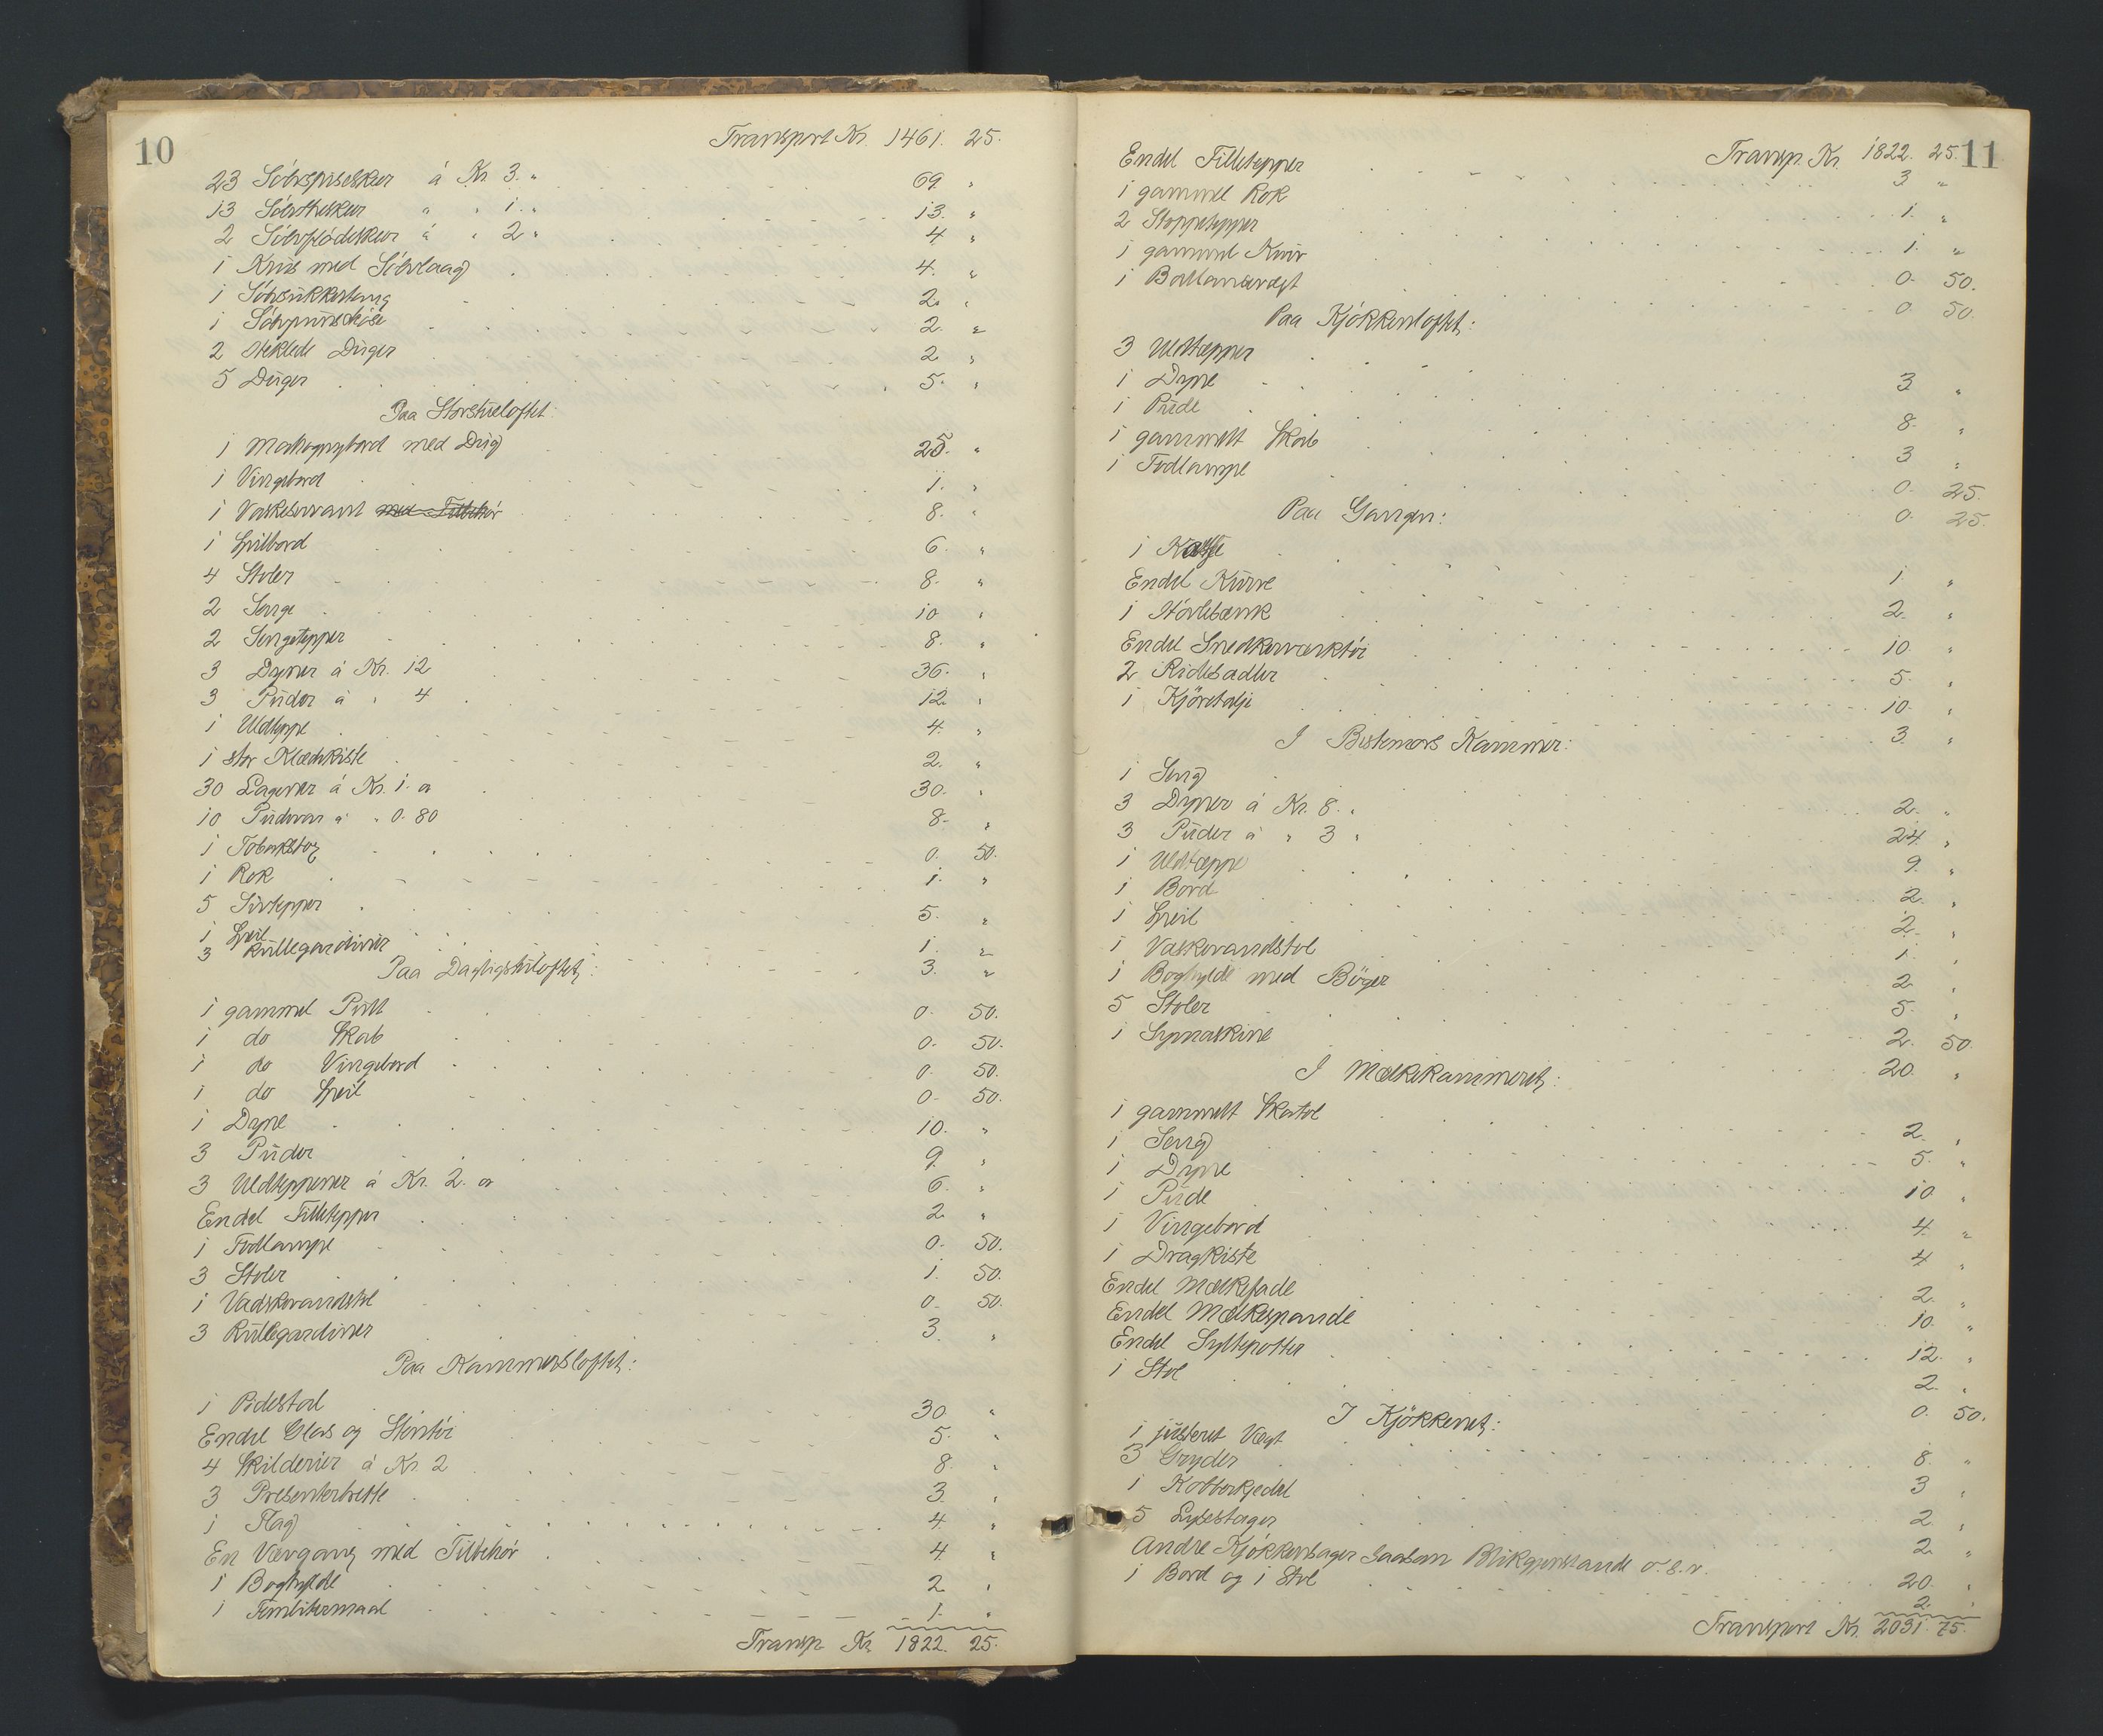 10
Transport Kr. 1461. 25.
23 Sölvspiseskeer á Kr 3. " 69 "
13 Sölvtheskeer " " 1. " 13. "
2 Sölvflödeskeer á " 2 " 4 "
1 Krus med Sölvlaag 4. "
1 Sölvsukkertang 2. "
1 Sölvpunscheöse 2. "
2 Heklede Duger 2 "
5 Duger 5. "
Paa Storstueloftet:
1 Mahognybord med Dug 25. "
1 Vingebord 1. "
1 Vaskeservant med Tilbehör 8. "
1 Speilbord 6. "
4 Stoler 8. "
2 Senge 10 "
2 Sengetepper 8. "
3 Dyner á Kr. 12 36. "
3 Puder á " 4 12. "
1 Uldteppe 4. "
1 stor Klædekiste 2. "
30 Lagener á Kr. 1. " 30. "
10 Pudevar á " 0.80 8. "
1 Tobakstoz 0. 50.
1 Rok 1. "
5 Sivtepper 5. "
1 Speil 1. "
3 Rullegardiner 3. "
Paa Dagligstuloftet:
1 gammel Pult 0. 50.
1 do Skab 0. 50.
1 do Vingebord 0. 50.
1 do Speil 0. 50.
1 Dyne 10. "
3 Puder 9. "
3 Uldteppener á Kr. 2. " 6. "
Endel Filletepper 2. "
1 Fodlampe 0. 50.
3 Stoler 1. 50.
1 Vadskevandstol 0. 50.
3 Rullegardiner 3. "
Paa Kammersloftet:
1 Pidestal 30. "
Endel Glas og Stentöi 5. "
4 Skilderier á Kr. 2 8. "
3 Presenterbrette 3. "
1 Flag 4. "
En Vævgang med Tilbehör 4 "
1 Boghylde 2 "
1 Femlitermaal 1. "
Transp. Kr. 1822. 25.
11
Transp. Kr. 1822. 25.
Endel Filletepper 3 "
1 gammel Rok 1. "
2 Stoppetepper 1. "
1 gammel Kurv 0. 50.
1 Ballansevægt 0. 50.
Paa Kjökkenloftet:
3 Uldtæpper 3 "
1 Dyne 8. "
1 Pude 3 "
1 gammelt Skab 0. 25.
1 Fodlampe 0. 25.
Paa Gangen:
1 Kasse 1 "
Endel Kurve 2. "
1 Hövlebænk 10. "
Endel Snedkerværktöi 5. "
2 Ridesadler 10. "
1 Kjöretalje 3. "
I Bestemors Kammer:
1 Seng 2. "
3 Dyner á Kr. 8. " 24. "
3 Puder á " 3 " 9. "
1 Uldtæppe 2. "
1 Bord 2. "
1 Speil 1. "
1 Vaskevandstol 2. "
1 Boghylde med Böger 5. "
5 Stoler 2. 50
1 Symaskine 20. "
I Mælkekammeret:
1 gammelt Skatol 2. "
1 Seng 5. "
1 Dyne 10 "
1 Pude 4. "
1 Vingebord 4 "
1 Dragkiste 2. "
Endel Mælkefade 10. "
Endel Mælkespande 12. "
Endel Syltepotter 2. "
1 Stol 0. 50.
I Kjökkenet:
1 justeret Vægt 8. "
3 Gryder 3 "
1 Kobberkjedel 2. "
5 Lysestager 2. "
Andre Kjökkensager saasom Blikgjenstande o.s.v. 20. "
1 Bord og 1 Stol 2. "
Transport Kr. 2031. 75.